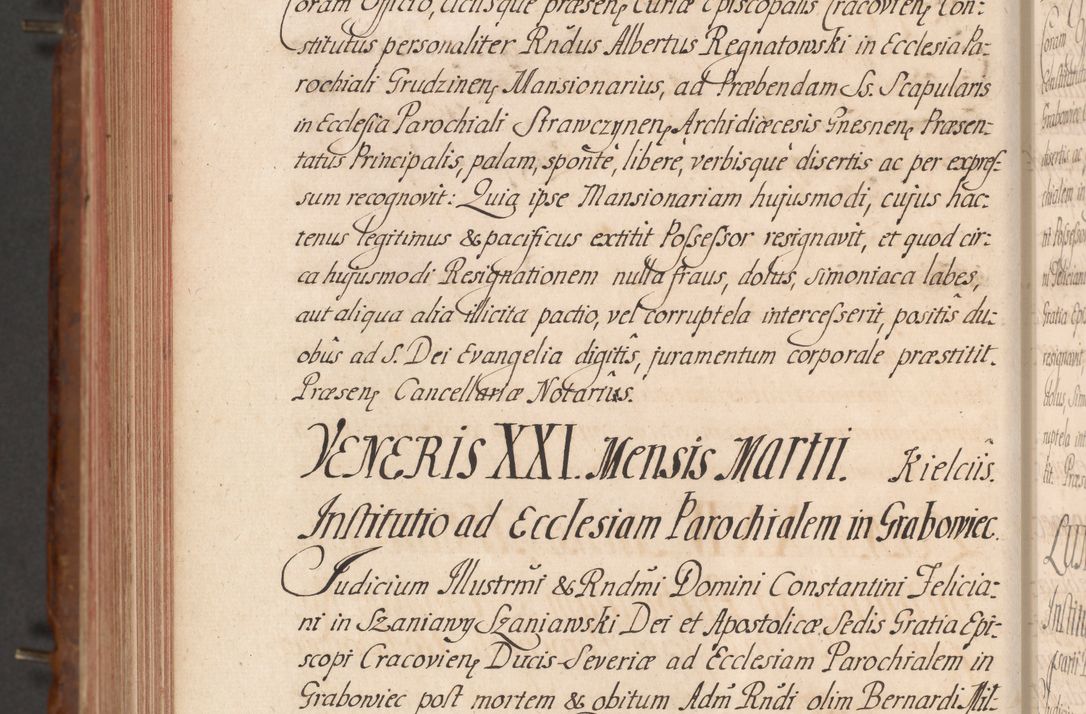 Coram Officio, Actisque præsenę Curiæ Episcopalis Cracovienę Con:
stitutus personaliter Rndus Albertus Regnatowski in Ecclesia Pa:
rochiali Grudzinenę Mansionarius, ad Præbendam Ss. Scapularis
in Ecclesia Parochiali Strawczynenę Archidiæcesis Gnesnenę Præsen:
tatus Principalis, palam, sponte, libere, verbisque disertis ac per expres:
sum recognovit: Quia ipse Mansionariam hujusmodi, cujus hac:
tenus legitimus & pacificus extitit Possessor resignavit, et quod cir:
ca hujusmodi Resignationem nulla fraus, dolus, simoniaca labes,
aut aliqua alia illicita pactio, vel corruptela intercesserit, positis du:
obus ad S. Dei Evangelia digitis, juramentum corporale præstitit.
Præsenę Cancellariæ Notarius.
VENERIS XXI. Mensis Martii. Kielciis.
Institutio ad Ecclesiam Parochialem in Grabowiec.
Judicium Illustrmi & Rndmi Domini Constantini Felicia:
ni in Szaniawy Szaniawski Dei et Apostolicæ Sedis Gratia Epi:
scopi Cracovienę Ducis Severiæ ad Ecclesiam Parochialem in
Grabowiec post mortem & obitum Adm Rndi olim Bernardi Mil: